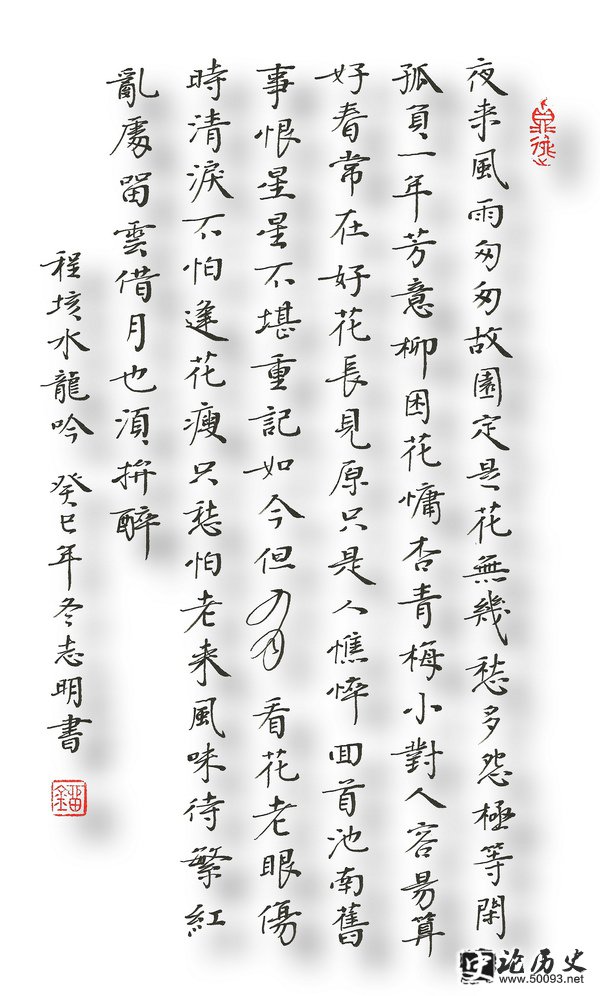 夜来風雨匆匆故園定是花無幾愁多怨極等閑
孤負一年芳意柳困花慵杏青梅小對人容易算
好春常在好花長見原只是人憔悴回首池南舊
事恨星星不堪重記如今但看花老眼傷
時清淚不怕逢花瘦只愁怕老来風味待繁紅
亂處留雲借月也須拚醉
程垓水龍吟 癸巳年冬志明書
论历史
www.50093.net